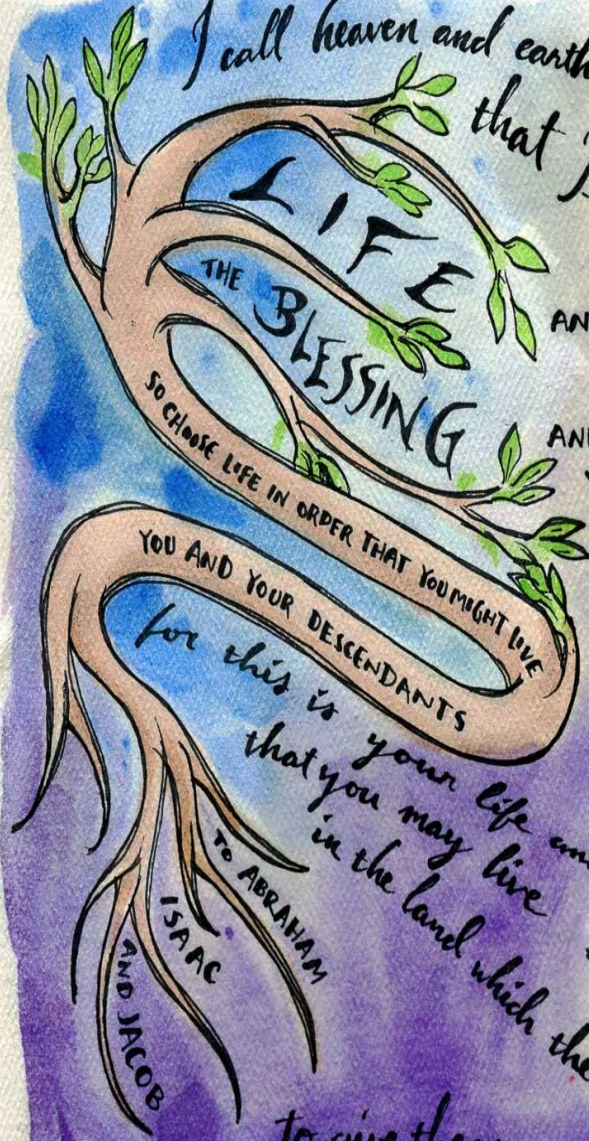 I call heaven and earth
that I
LIFE
THE BLESSING
SO CHOOSE LIFE IN ORDER THAT YOU MIGHT LIVE
YOU AND YOUR DESCENDANTS
for this is your life and
that you may live
in the land which the
TO ABRAHAM
ISAAC
AND JACOB
to give the